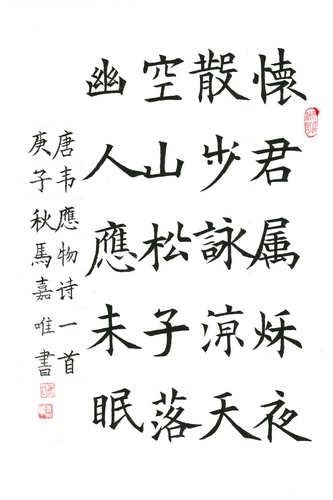 懷君属秌夜
散步詠涼天
空山松子落
幽人應未眠
唐韦應物诗一首
庚子秋馬嘉唯書